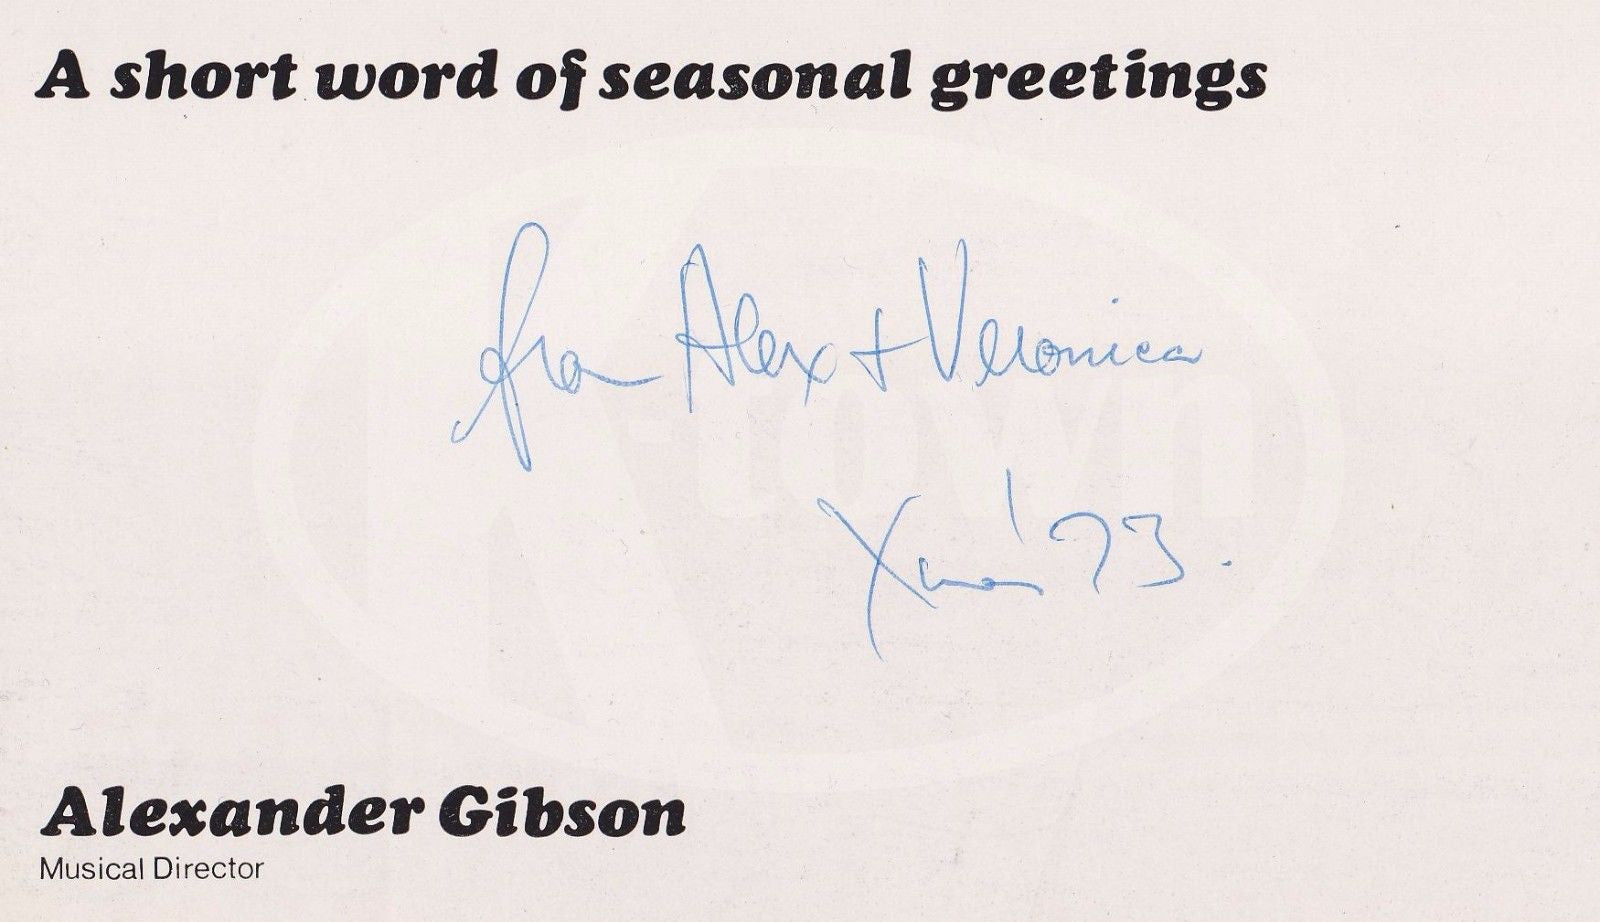 A short word of seasonal greetings
from Alex + Veronica
Xmas '73.
Alexander Gibson
Musical Director